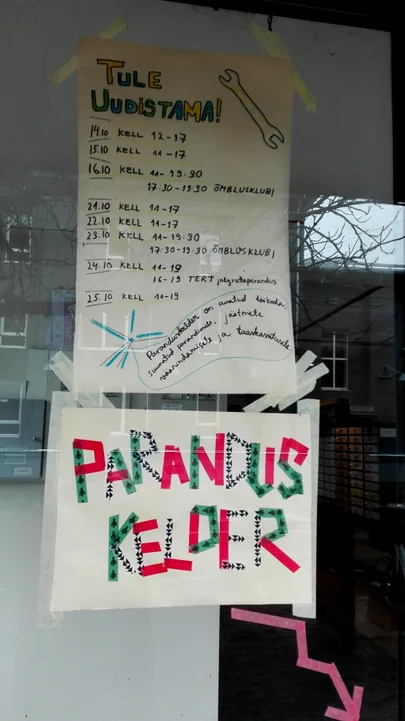 TULE
UUDISTAMA!
14.10 KELL 12-17
15.10 KELL 11-17
16.10 KELL 11-19:30
17:30-19:30 ÕMBLUSKLUBI
21.10 KELL 11-17
22.10 KELL 11-17
23.10 KELL 11-19:30
17:30-19:30 ÕMBLUSKLUBI
24.10 KELL 11-19
16-19 TERT jalgrattaparandus
25.10 KELL 11-19
Paranduskelder on avatud töökoda,
suunatud parandamisele, jäätmete
vähendamisele ja taaskasutusele
PARANDUS
KELDER